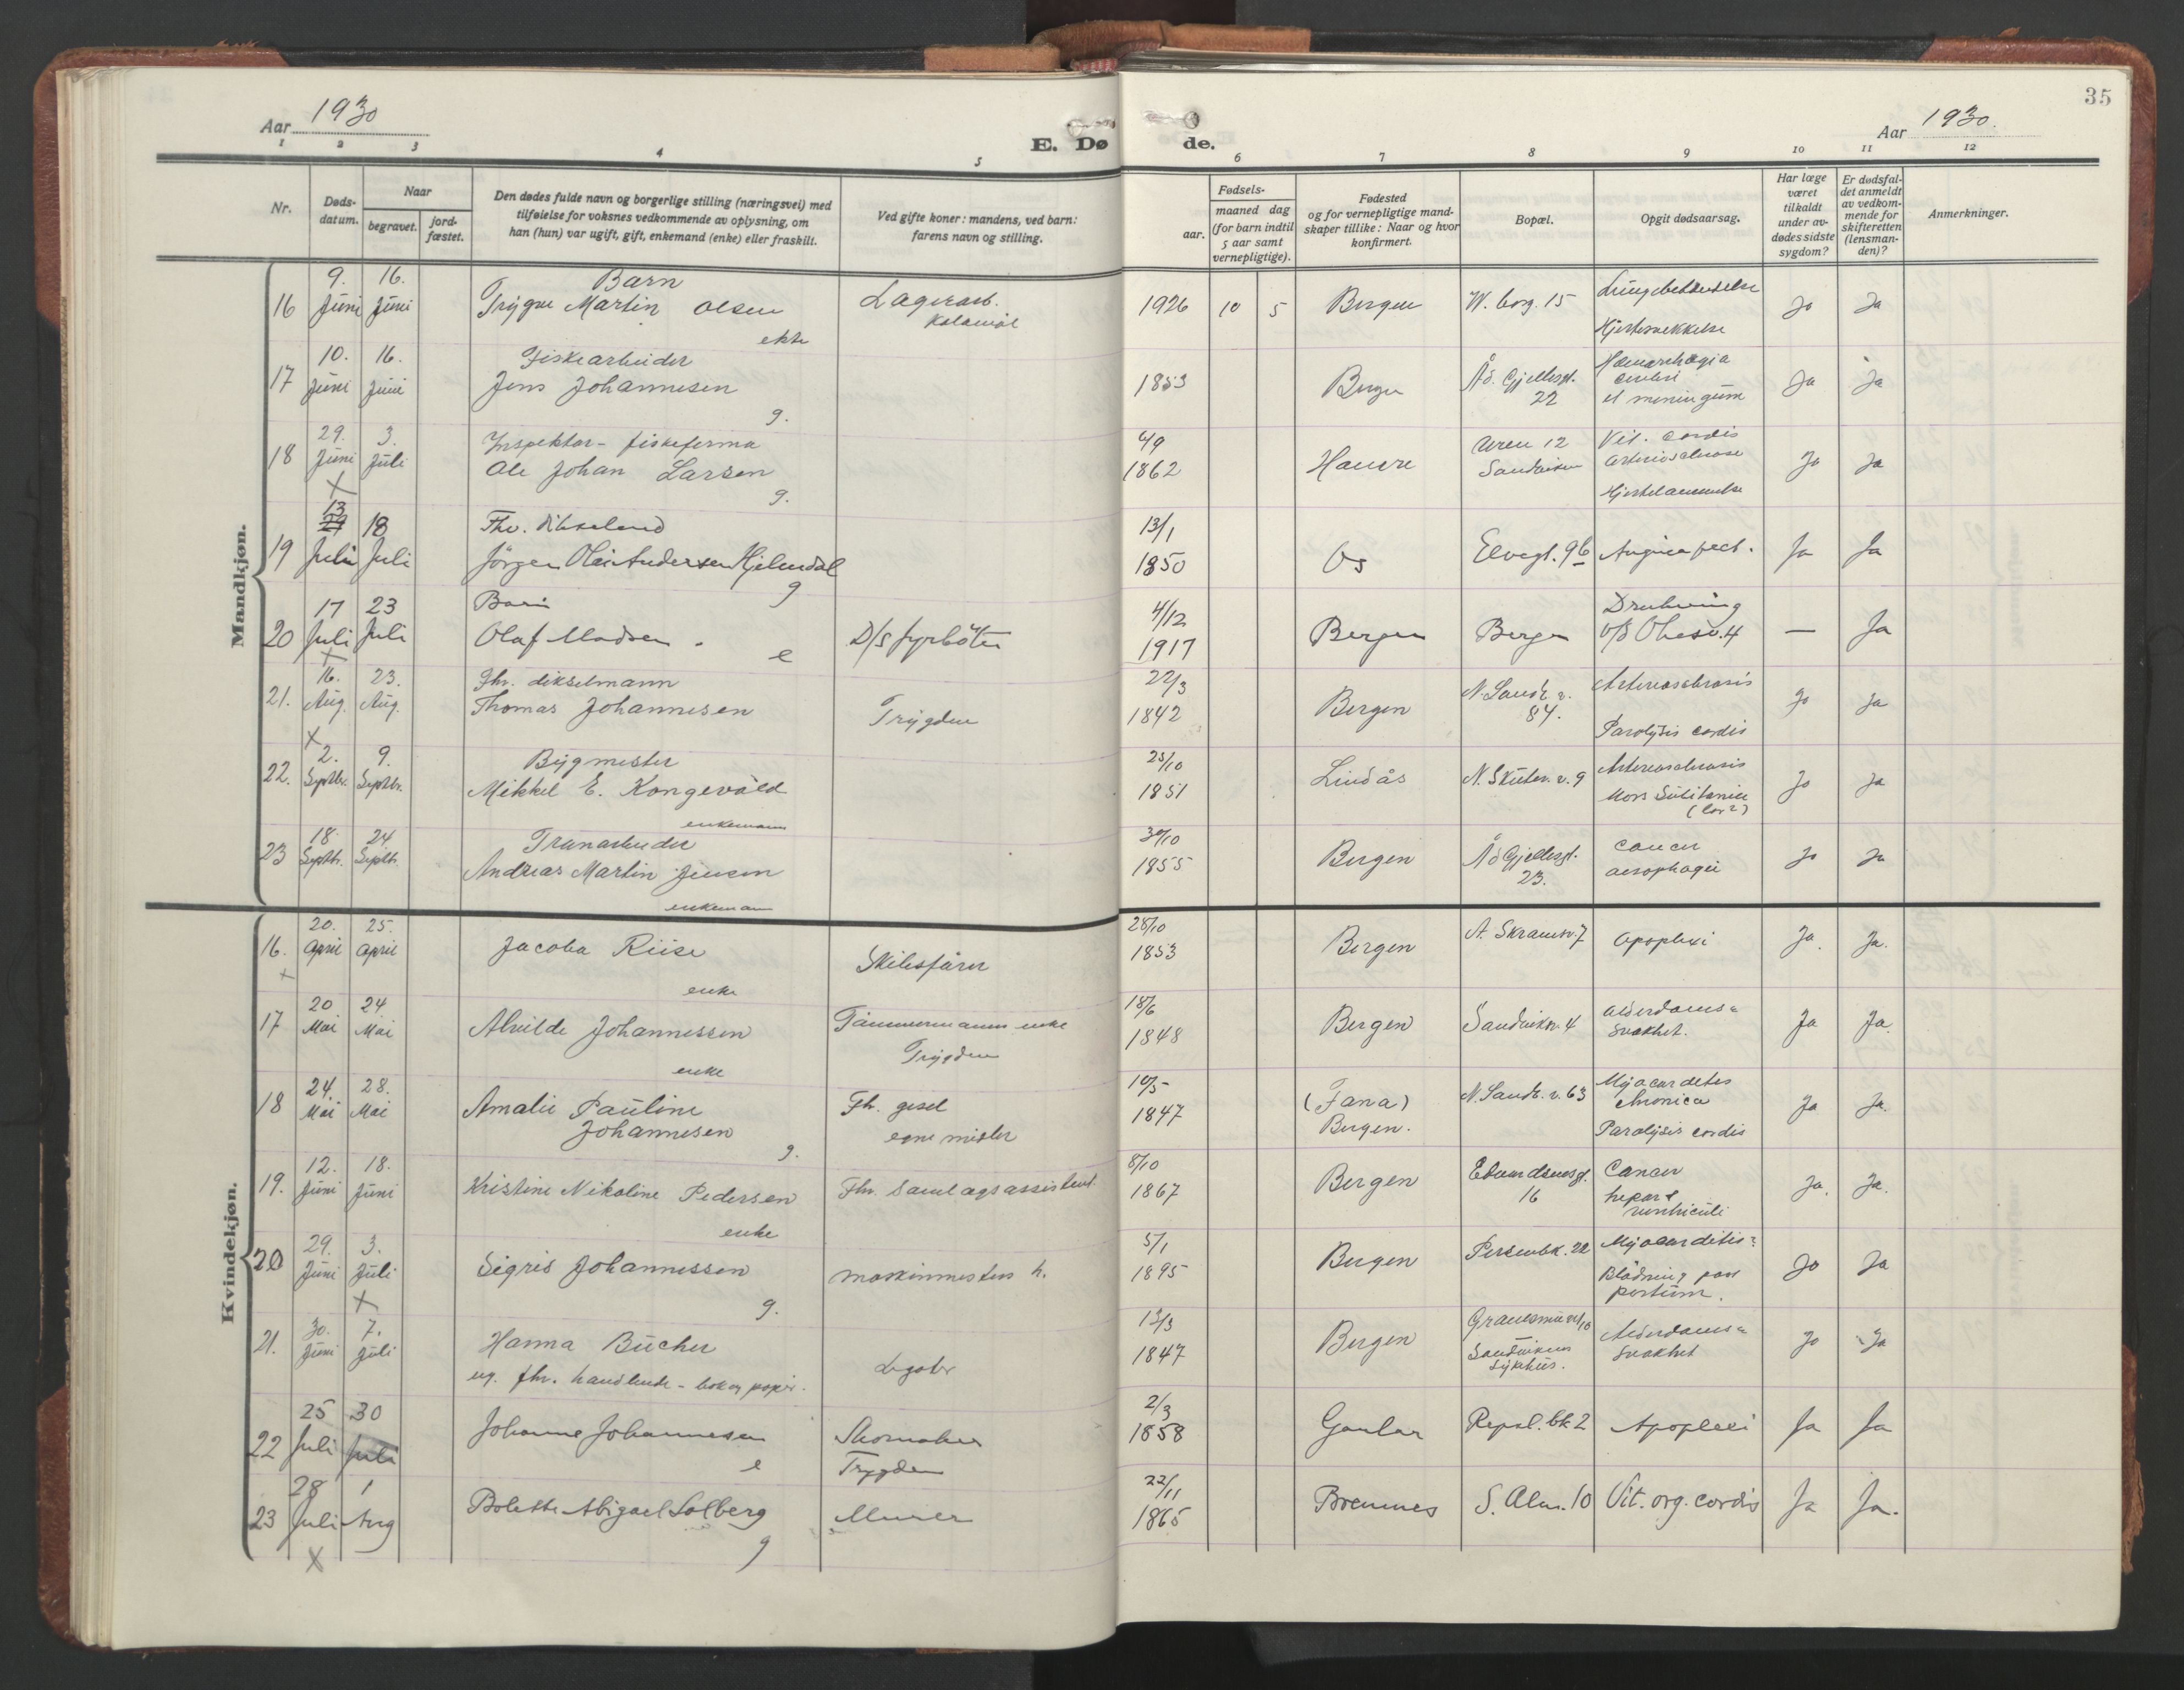 35
Aar 1930
E. Dø
de.
Aar 1930.
1 2 3 4 5 6 7 8 9 10 11 12
Nr.
Døds-
datum.
Naar
begravet.
jord-
fæstet.
Den dødes fulde navn og borgerlige stilling (næringsvei) med
tilføielse for voksnes vedkommende av oplysning, om
han (hun) var ugift, gift, enkemand (enke) eller fraskilt.
Ved gifte koner: mandens, ved barn:
farens navn og stilling.
Fødsels-
aar.
maaned dag
(for barn indtil
5 aar samt
vernepligtige).
Fødested
og for vernepligtige mand-
skaper tillike: Naar og hvor
konfirmert.
Bopæl.
Opgit dødsaarsag.
Har læge
været
tilkaldt
under av-
dødes sidste
sygdom?
Er dødsfal-
det anmeldt
av vedkom-
mende for
skifteretten
(lensman-
den)?
Anmerkninger.
Mandkjøn.
16 9. Juni 16. Juni Barn
Trygve Martin Olsen
ekte
Lagerarb.
Kolonial
1926 10 5 Bergen W. borg. 15 Lungebetendelse
Hjertesvekkelse
Ja Ja
17 10. Juni 16. Juni Fiskearbeider
Jens Johannesen
g.
1853 Bergen Ad. Gjellesgt.
22
Hæmorrhagia
cerebri
et meningum
Ja Ja
18 29. Juni 3. Juli
Inspektør - fiskefirma
Ole Johan Larsen
g.
4/9
1862 Hamre Uren 12
Sandviken
Vit. cordis
arteriosclerose
Hjertelammelse
Ja Ja
19 13 Juli 18 Juli
Fhv.
Jørgen Olai Andersen Hjelmdal
g
13/1
1850 Os Elvegt. 9b Angina pect. Ja Ja
20 17 Juli 23 Juli
Barn
Olaf Madsen
e
D/S fyrbøter
4/12
1917 Bergen Bergen Drukning
v/B. 4
— Ja
21. 16. Aug. 23. Aug.
Fhv. dikselmann
Thomas Johannesen
Trygden
22/3
1842 Bergen N. Sandv. v.
84.
Arteriosclerosis
Paralysis cordis
Ja Ja
22. 2. Septbr. 9. Septbr.
Bygmester
Mikkel E. Kongevold
enkemann
25/10
1851 Lindås N. Skutev. v. 9 Arteriosclerosis
Mors Subitania
(Cor?)
Ja Ja
23 18. Septbr. 24. Septbr.
Tranarbeider
Andreas Martin Jensen
enkemann
30/10
1855 Bergen Ad Gjellesgt.
23.
Cancer
aesophagei
Ja Ja
Kvindekjøn.
16. 20. April 25. April
Jacoba Riise
enke
Skibsfører
28/10
1853 Bergen A. Skramsv. 7 Apoplexi Ja. Ja.
17 20 Mai 24. Mai
Alvilde Johannessen
enke
Tømmermanns enke
Trygden
18/6
1848 Bergen Sandviksv. 4 Alderdoms=
svakhet.
Ja Ja.
18 24. Mai 28. Mai
Amalie Pauline
Johannesen
g.
Fh. gesel
egne midler
10/5
1847 (Fana)
Bergen.
N. Sandv. v. 63 Myocarditis
chronica
Paralysis cordis
Ja Ja.
19. 12. Juni 18. Juni
Kristine Nikoline Pedersen
enke
Fhv. Samlagsassistent.
8/10
1867 Bergen Edvardsensgt.
16
Cancer
hepar &
ventriculi
Ja. Ja.
20 29. Juni 3. Juli
Sigrid Johannessen
g.
maskinmesters h.
5/1
1895 Bergen Persenbk. 22 Myocarditis=
Blødning post
partum.
Ja Ja
21. 30. Juni 7. Juli
Hanna Bücher
ug. fhv. handlende - bok og papir.
Legater
13/3
1847 Bergen
Sandvikens
sykehus.
Alderdoms=
svakhet
Ja Ja
22 25 Juli 30 Juli
Johanne Johannesen
e
Skomaker
Trygden
2/3
1858 Gaular Repsl. bk 2 Apoplexi Ja Ja
23 28 Juli 1 Aug
Bolette Abigael Solberg
g
Murer
22/11
1865 Bremnes S. Alm. 10 Vit. org. cordis Ja Ja.